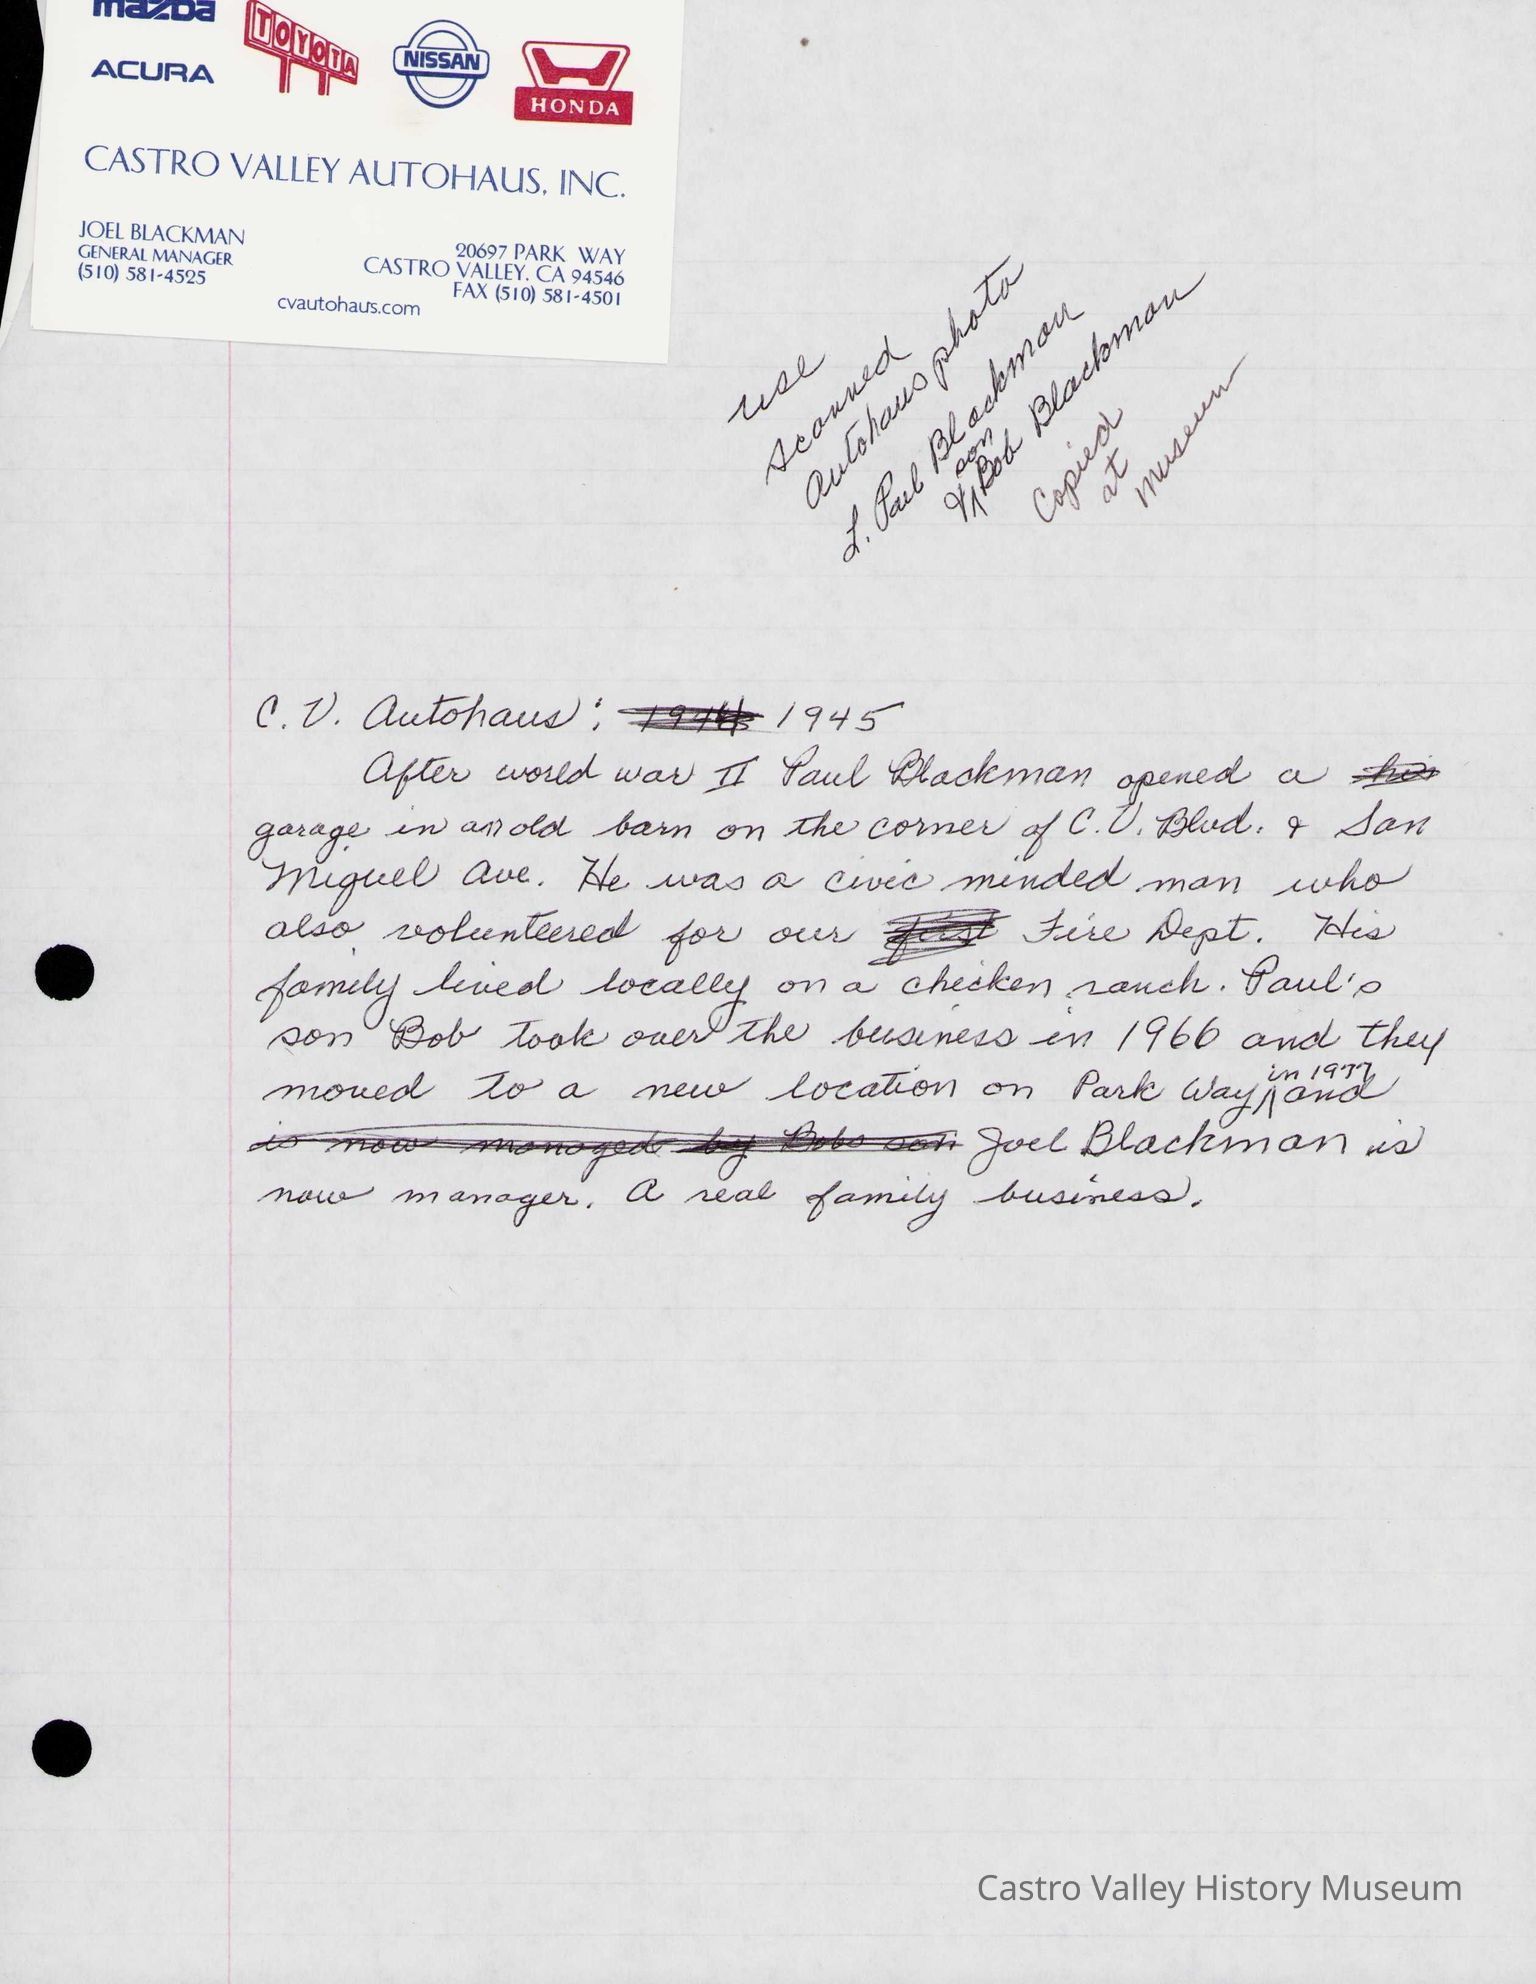 mazda
TOYOTA
NISSAN
HONDA
ACURA
CASTRO VALLEY AUTOHAUS, INC.
JOEL BLACKMAN
GENERAL MANAGER
(510) 581-4525
20697 PARK WAY
CASTRO VALLEY. CA 94546
FAX (510) 581-4501
cvautohaus.com
use
scanned
Autohaus photo
L. Paul Blackman
& son Bob Blackman
Copied
at
museum
C. V. Autohaus: 1945
After world war II Paul Blackman opened a his
garage in an old barn on the corner of C.V. Blvd. & San
Miguel Ave. He was a civic minded man who
also volunteered for our first Fire Dept. His
family lived locally on a chicken ranch. Paul's
son Bob took over the business in 1966 and they
moved to a new location on Park Way in 1977 and
is now managed by Bobs son Joel Blackman is
now manager. A real family business.
Castro Valley History Museum